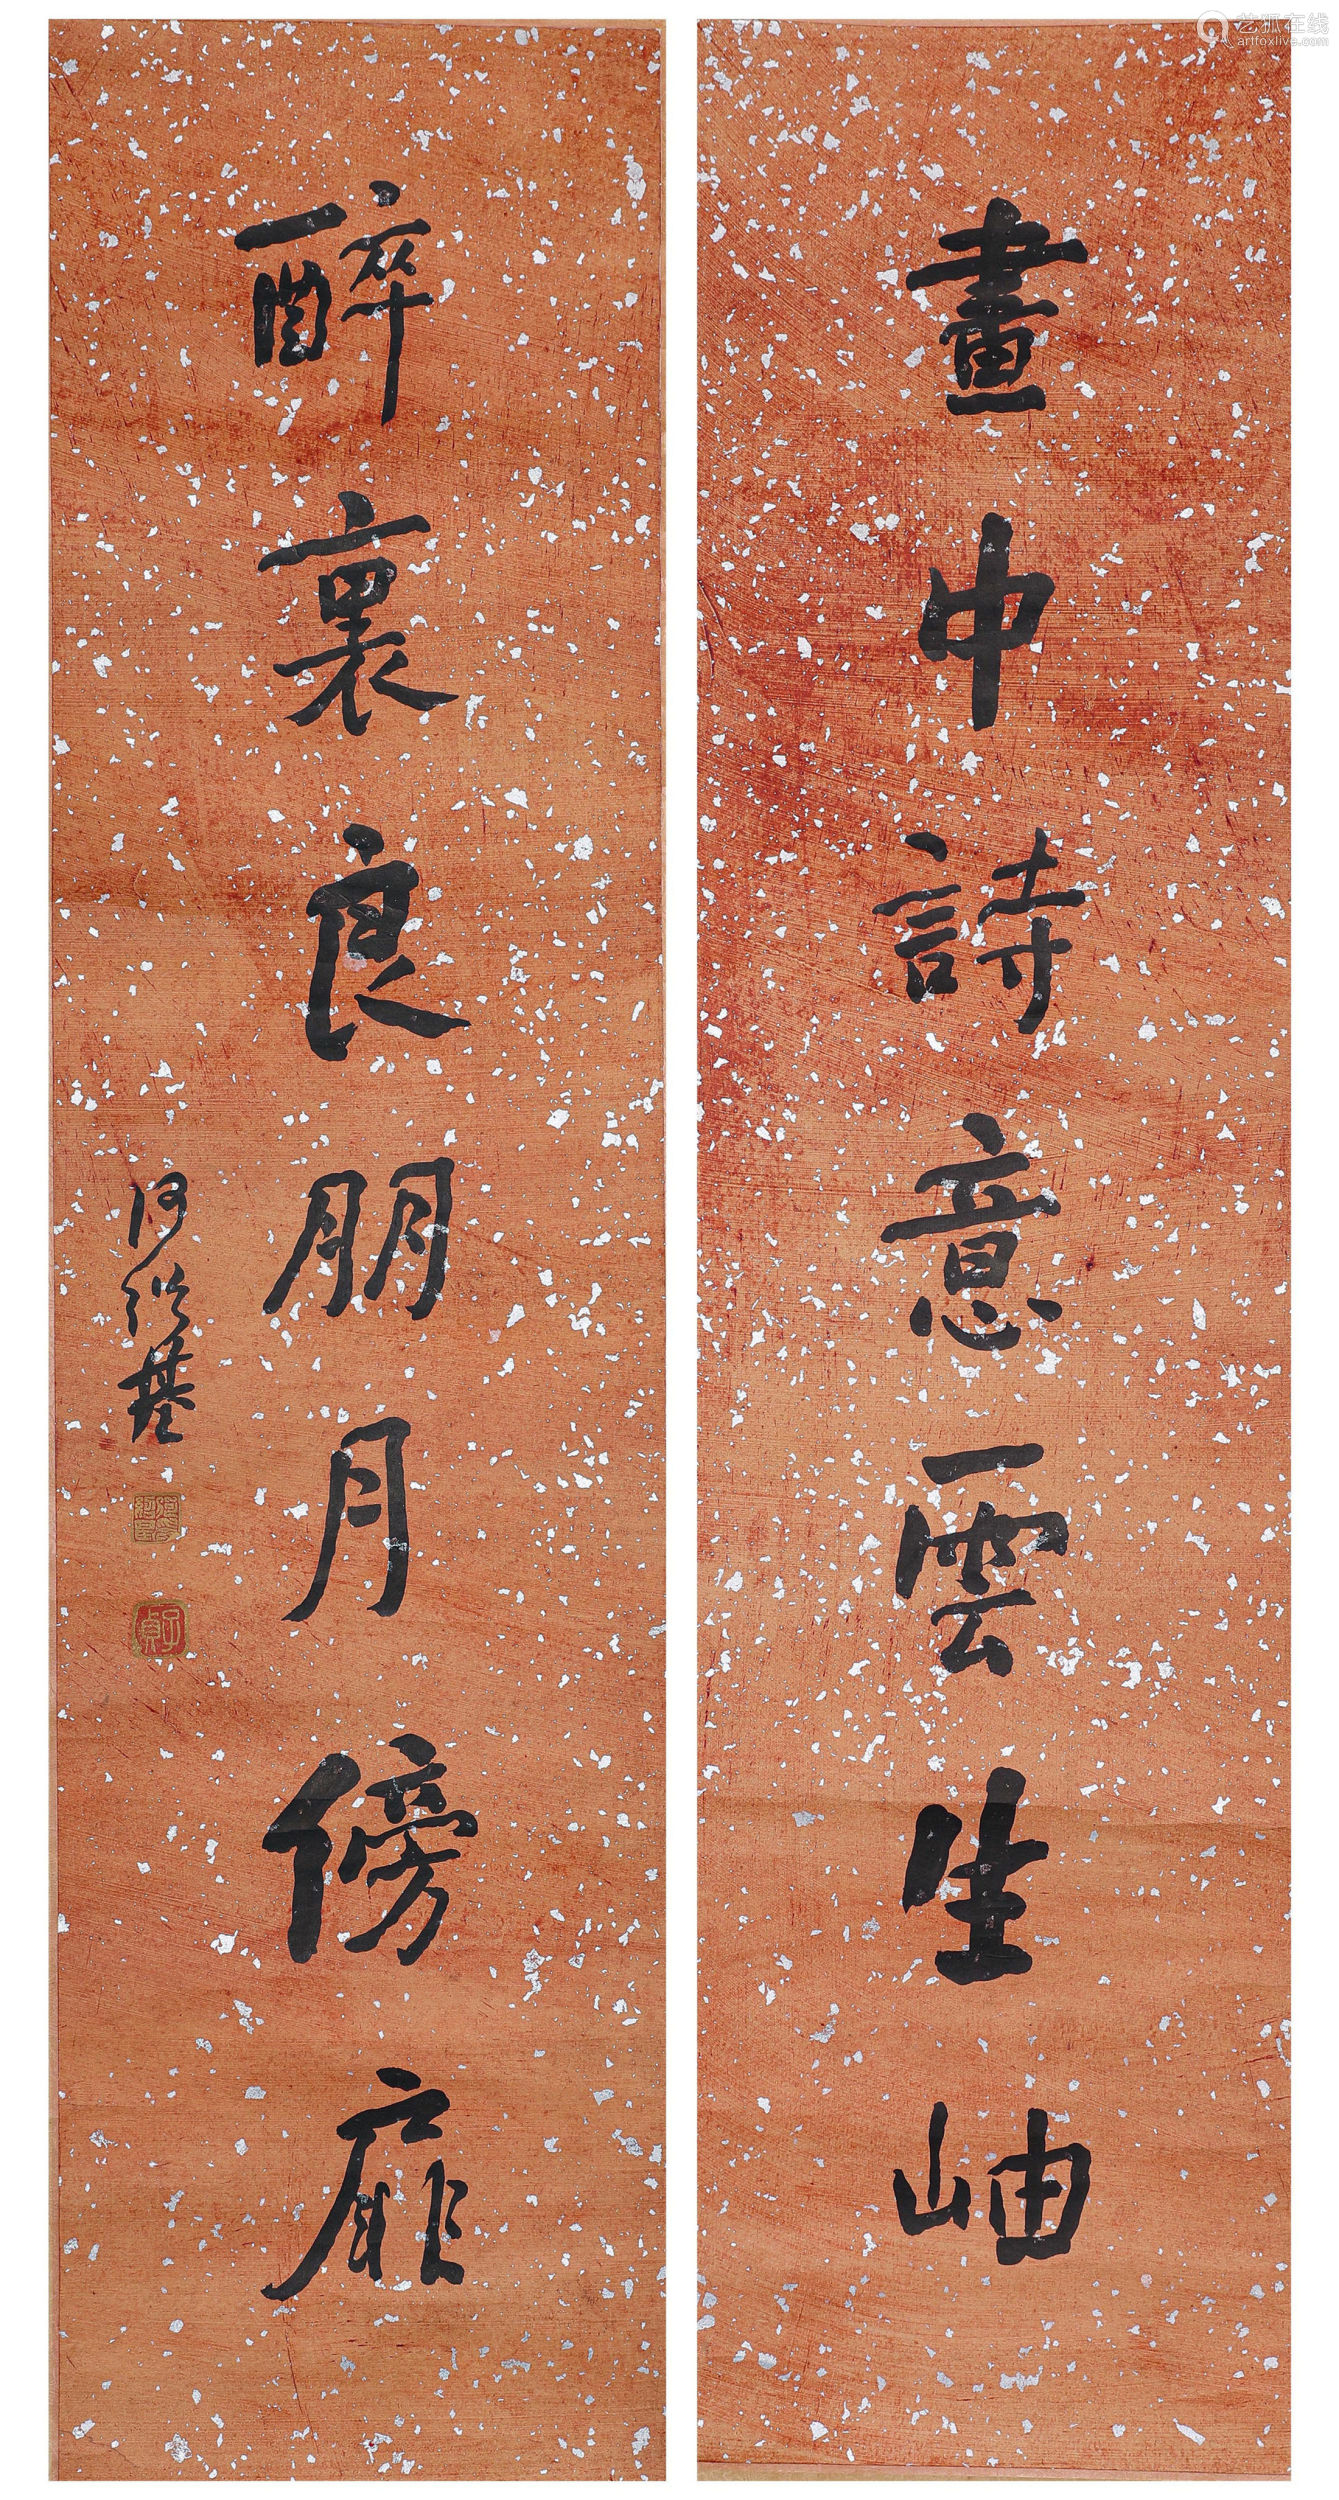 畫中詩意雲生岫
醉裏良朋月傍扉
何紹基
子貞
艺狐在线
artfoxlive.com